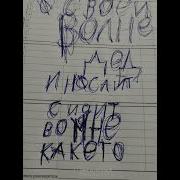 О СВОЕЙ
ВОЛНЕ
ДЕД
ИНОСАИТ
СИДИТ
ВО МНЕ
КАК ЕТО